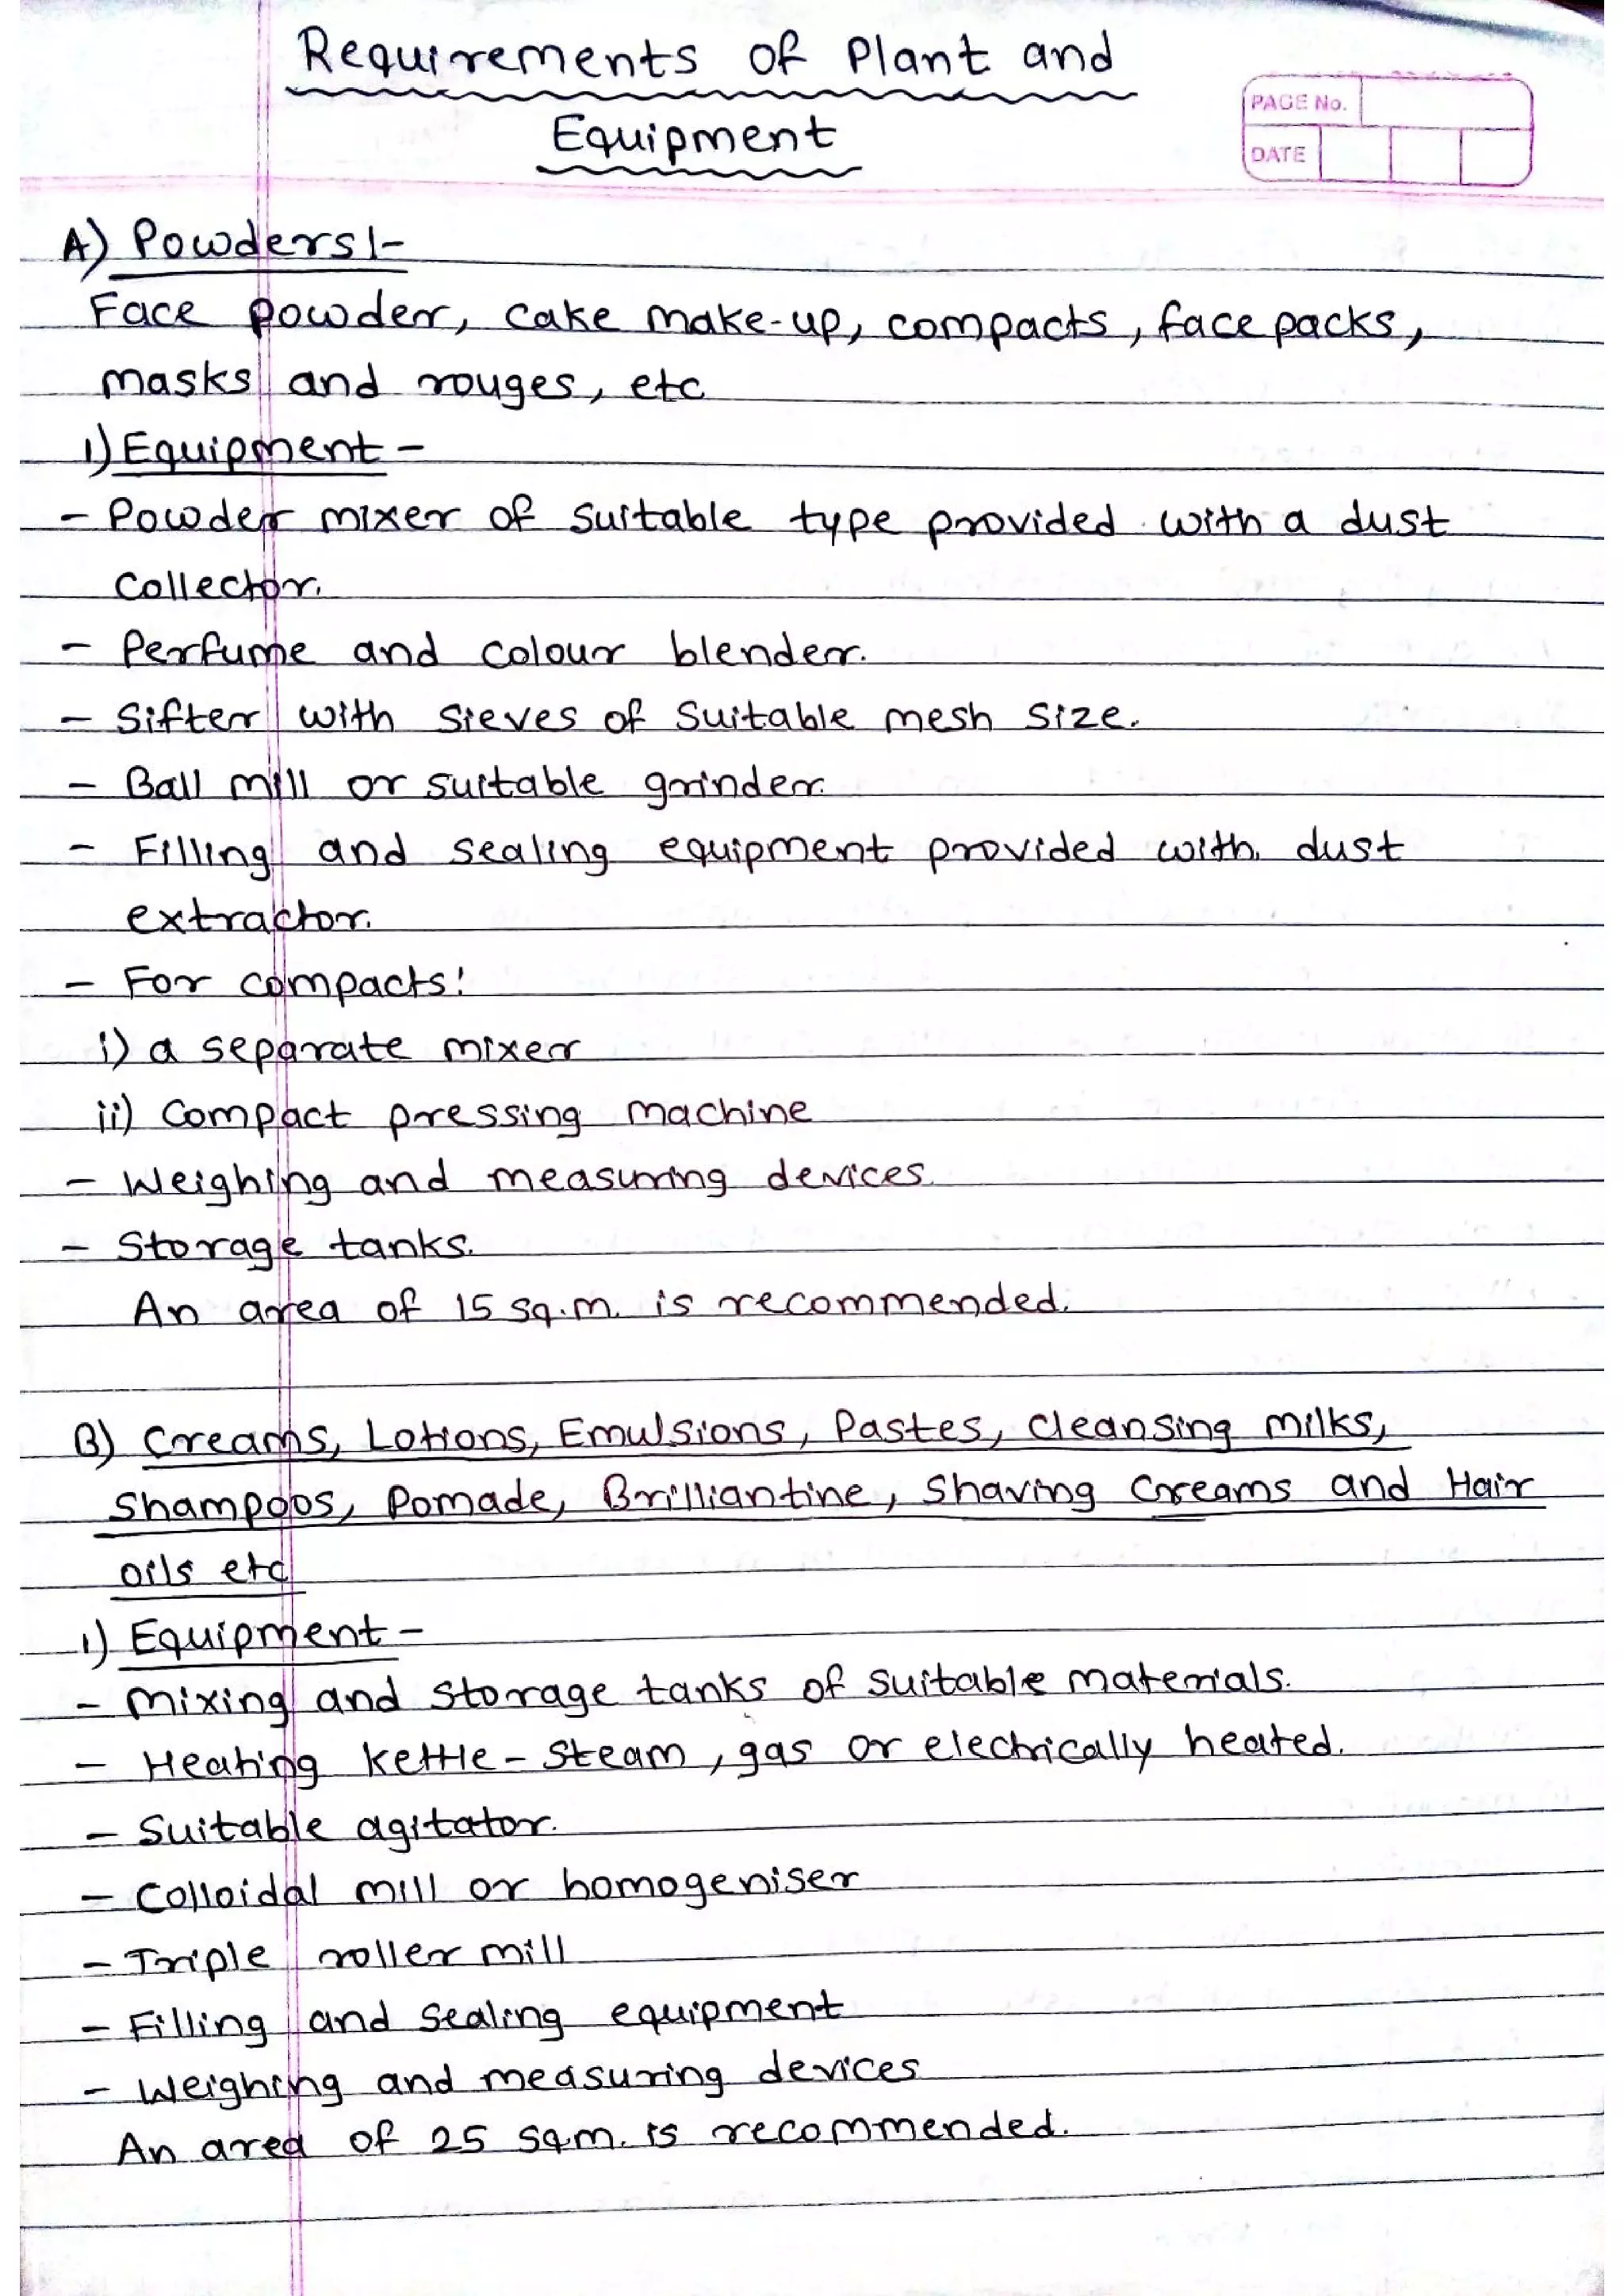 Requirements of Plant and
Equipment
PAGE No.
DATE
A) Powders:-
Face powder, cake make-up, compacts, face packs,
masks and rouges, etc
1) Equipment -
- Powder mixer of suitable type provided with a dust
collector.
- Perfume and colour blender.
- Sifter with sieves of suitable mesh size.
- Ball mill or suitable grinder.
- Filling and sealing equipment provided with dust
extractor.
- For compacts:
i) a separate mixer
ii) compact pressing machine
- Weighing and measuring devices.
- Storage tanks.
An area of 15 sq.m. is recommended.
B) Creams, Lotions, Emulsions, Pastes, cleansing milks,
Shampoos, Pomade, Brilliantine, Shaving Creams and Hair
oils etc
1) Equipment -
- Mixing and storage tanks of suitable materials.
- Heating kettle - Steam, gas or electrically heated.
- Suitable agitator.
- Colloidal mill or homogeniser
- Triple roller mill
- Filling and Sealing equipment
- Weighing and measuring devices
An area of 25 sq.m. is recommended.